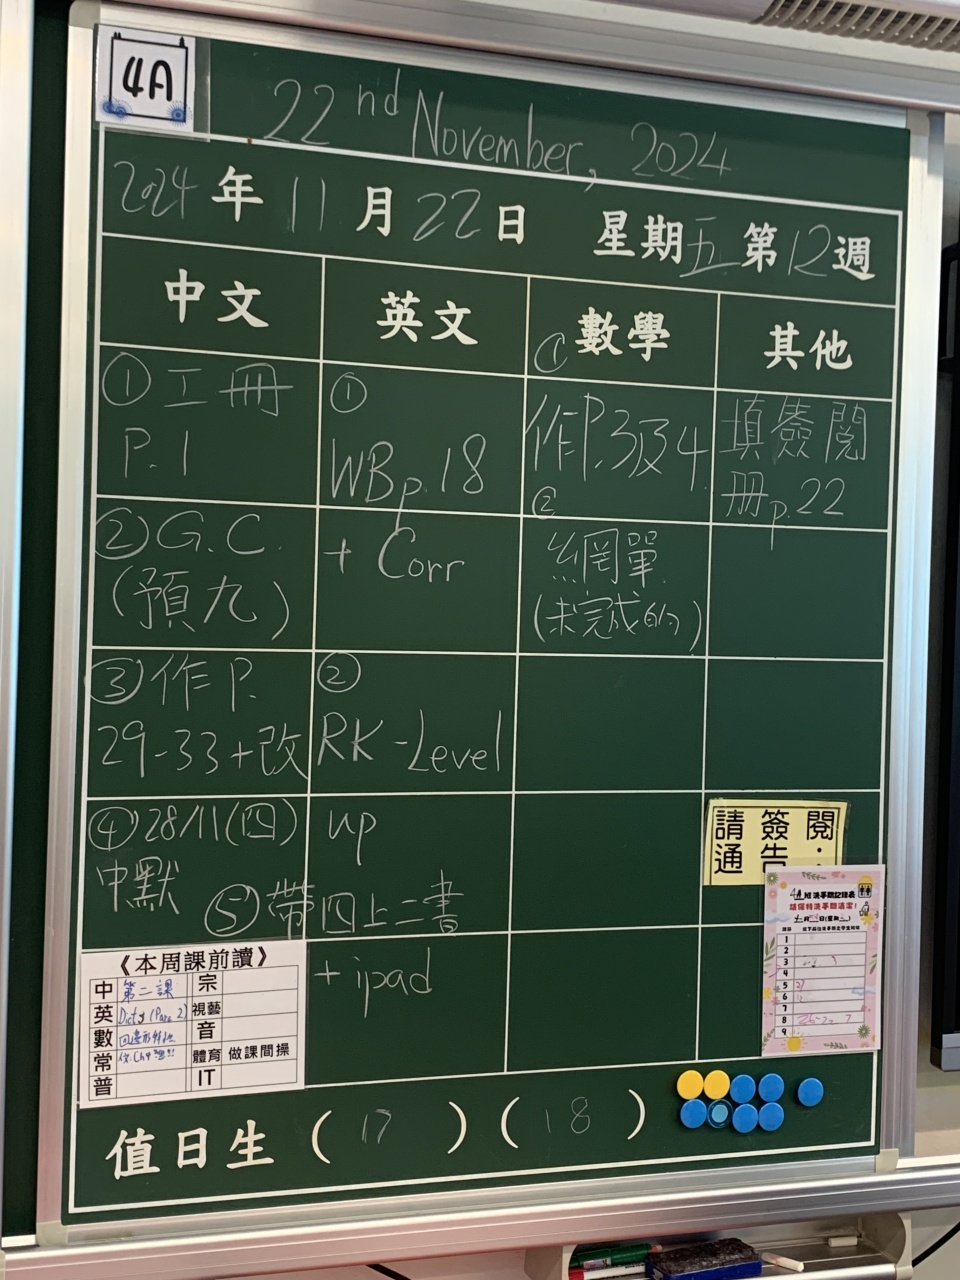 4A
22nd November, 2024
2024年11月22日 星期五 第12週
中文 英文 數學 其他
① 工冊
P.1
② G.C.
(預九)
③ 作P.
29-33+改
④ 28/11(四)
中默
⑤ 帶四上二書
①
WB p.18
+ Corr
②
RK-Level
up
+ ipad
①
作P.3及4
②
網單
(未完成的)
填簽閱
冊p.22
請簽閱:
通告
《本周課前讀》
中 第二課 宗
英 視藝
數 音
常 體育 做課間操
普 IT
4A班洗手間記錄表
請保持洗手間清潔!
1
2
3
4
5
6
7
8
9
值日生 (17) (18)